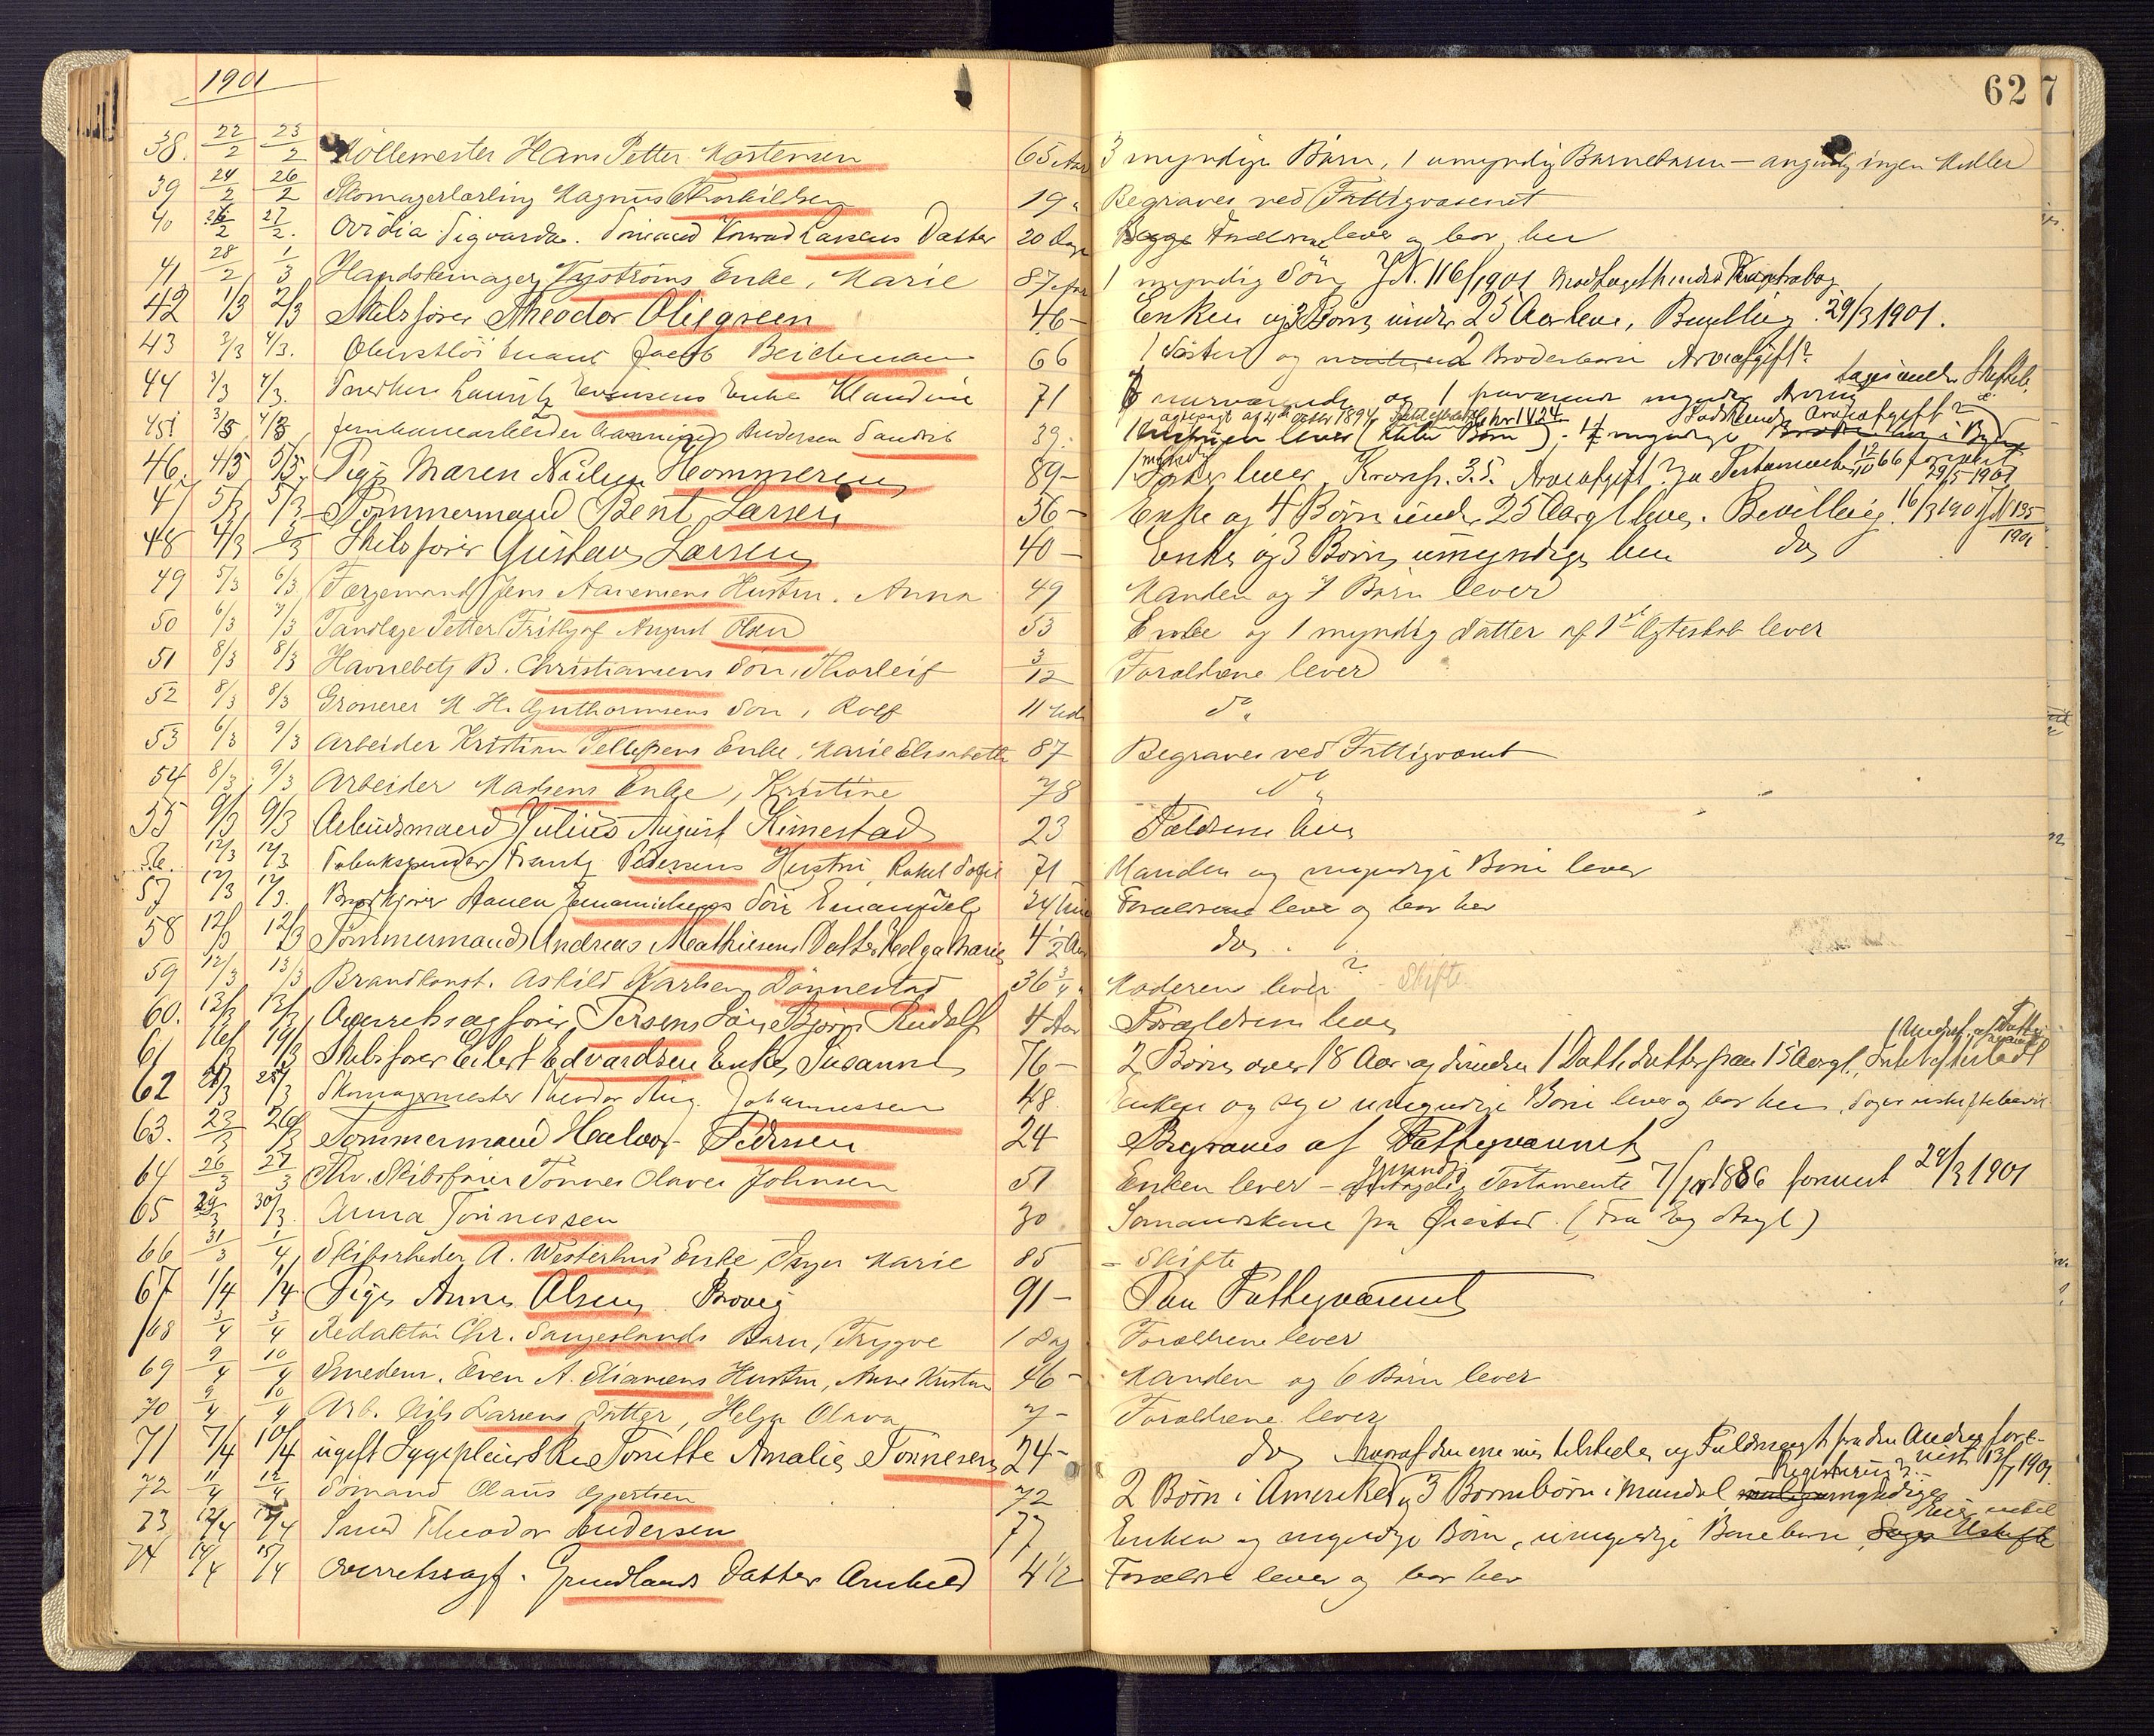 1901
62 7
38. 22/2 23/2 Möllemester Hans Petter Mortensen 65 Aar 3 myndige Börn, 1 umyndig Barnebarn – ingen Midler
39 24/2 26/2 Skomagerlærling Magnus Thorkildsen 19 " Begraves ved Fattigvæsenet
40 26/2 27/2. Ovidia Sigvarda. Sömand Konrad Larsens Datter 20 Dage Begge Forældrene lever og bor her
41 28/2 1/3 Handskemager Enke, Marie 87 Aar 1 myndig Sön J.N. 116/1901
42 1/3 2/3 Skibsförer Theodor Oliegreen 46 – Enken og 3 Börn under 25 Aar leve, Bevilling 29/3 1901.
43 3/3 4/3. Oberstlöitnant Jacob Beichman 66 1 Söster og 2 Broderbörn Arveafgift?
44 3/3 4/3. Snedker Lauritz Evensens Enke Klandine 71 og 1 fraværende myndig Arving
45 3/3 4/3 Jernbanearbeider Andersen Sandvik 39. Hustruen lever (Börn)
46. 4/3 5/3. Pige Maren Nielsen Hommeren 89 – 1 Söster lever, Kronpr. 35. Arveafgift? Testamente 12/10 66 29/5 1901
47 5/3 5/3 Tömmermand Bent Larsen 56 – Enke og 4 Börn under 25 Aar leve. Bevilling 16/3 1901 J.N. 135/1901
48 4/3 /3 Skibsförer Gustav Larsen 40 – Enke og 3 Börn, umyndige, leve do
49 5/3 6/3 Færgemand Jens Aanensens Hustru. Anna 49 Manden og 7 Börn lever
50 6/3 7/3 Tandlæge Petter Frithjof August Olsen 53 Enke og 1 myndig Datter af 1st Ægteskab lever
51 8/3 8/3 Havnebetj B. Christiansens Sön, Thorleif 3/12 Forældrene lever
52 8/3 8/3 Grönerer M. H. Guthormsens Sön, Rolf 11 Mdr do
53 6/3 9/3 Arbeider Kristian Tellefsens Enke, Marie Elisabeth 87 Begraves ved Fattigvæsenet
54 8/3 9/3 Arbeider Madsens Enke, Kristine 78 do
55 9/3 9/3 Arbeidsmand Julius August Kimestad 23 Forældrene leve
56. 12/3 12/3 Tobakspinder Frantz Pedersens Hustru, Rakel Sofie 71 Manden og myndige Börn lever
57 12/3 12/3. Brodkjörer Aanen Emanuelsens Sön Emanuel 24 Forældrene lever og bor her
58 12/3 12/3 Tömmermand Andreas Mathiesens Datter Helga Marie 4 1/2 Aar do.
59 12/3 13/3 Brandkonst. Askild Karlsen Dönnestad 36 3/4 Moderen lever? – Skifte
60. 13/3 13/3 Overretssagförer Persens Sön Björn Rudolf 4 Aar Forældrene leve
61 16/3 19/3 Skibsförer Eilert Edvardsens Enke, Susanne 76 – 2 Börn over 18 Aar og desuden 1 Datterdatter paa 15 Aar
62 25/3 25/3 Skomagermester Theodor Aug. Johannessen 48. Enken og syv umyndige Börn lever og bor her.
63. 23/3 26/3 Tömmermand Halvor Pedersen 24 Begraves af Fattigvæsenet
64 26/3 27/3 Fhv. Skibsförer Tönnes Olaves Johnsen 51 Enken lever – gjensidig Testamente 7/10 1886 forevist 29/3 1901
65 29/3 30/3. Anna Tönnessen 30. Sömandskone fra Öiestad. (Fra Eg Asyl)
66 31/3 1/4 Skibsrheder A. Westerhus Enke Inger Marie 85 – Skifte
67 1/4 1/4 Pige Anne Olsen Brovig 91 – Paa Fattigvæsenet
68 3/4 3/4 Redaktör Chr. Sangeslands Barn, Trygve 1 Dag Forældrene lever
69 9/4 10/4 Smedem. Even A. Eliasens Hustru, Anne Kirstine 46 – Manden og 6 Börn lever
70 9/4 10/4 Arb. Nils Larsens Datter, Helga Olava 7 – Forældrene lever
71 7/4 10/4 ugift Sygepleierske Tonette Amalie Tönnesen 24 – do hvoraf den ene tilstede og Fuldmagt fra den Anden forevist 13/7 1901
72 11/4 12/4 Sömand Olaus Gjertsen 72 2 Börn i Amerika og 3 Börnebörn i Mandal myndige Registrering?
73 12/4 /4 Smed Theodor Andersen 77 Enken og myndige Börn, umyndige Börnebörn
74 14/4 15/4 Overretssagf. Grundlands Datter Arnhild 4 1/2 Forældre lever og bor her